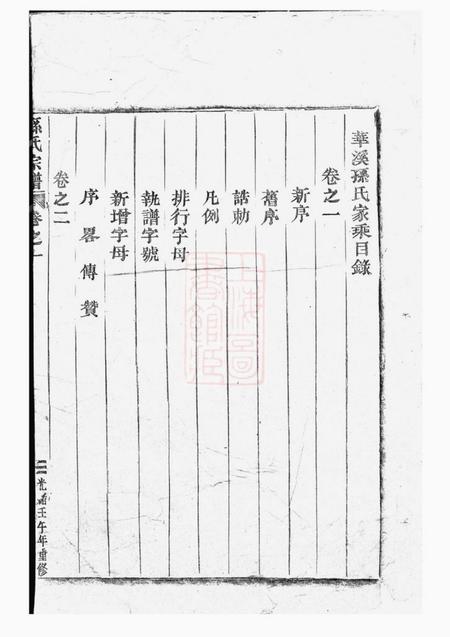 華溪孫氏家乘目錄
卷之一
新序
舊序
誥勅
凡例
排行字母
執譜字號
新增字母
序畧傳贊
卷之二
孫氏宗譜
卷之一
二
光緒壬午年重修
上海圖書館藏